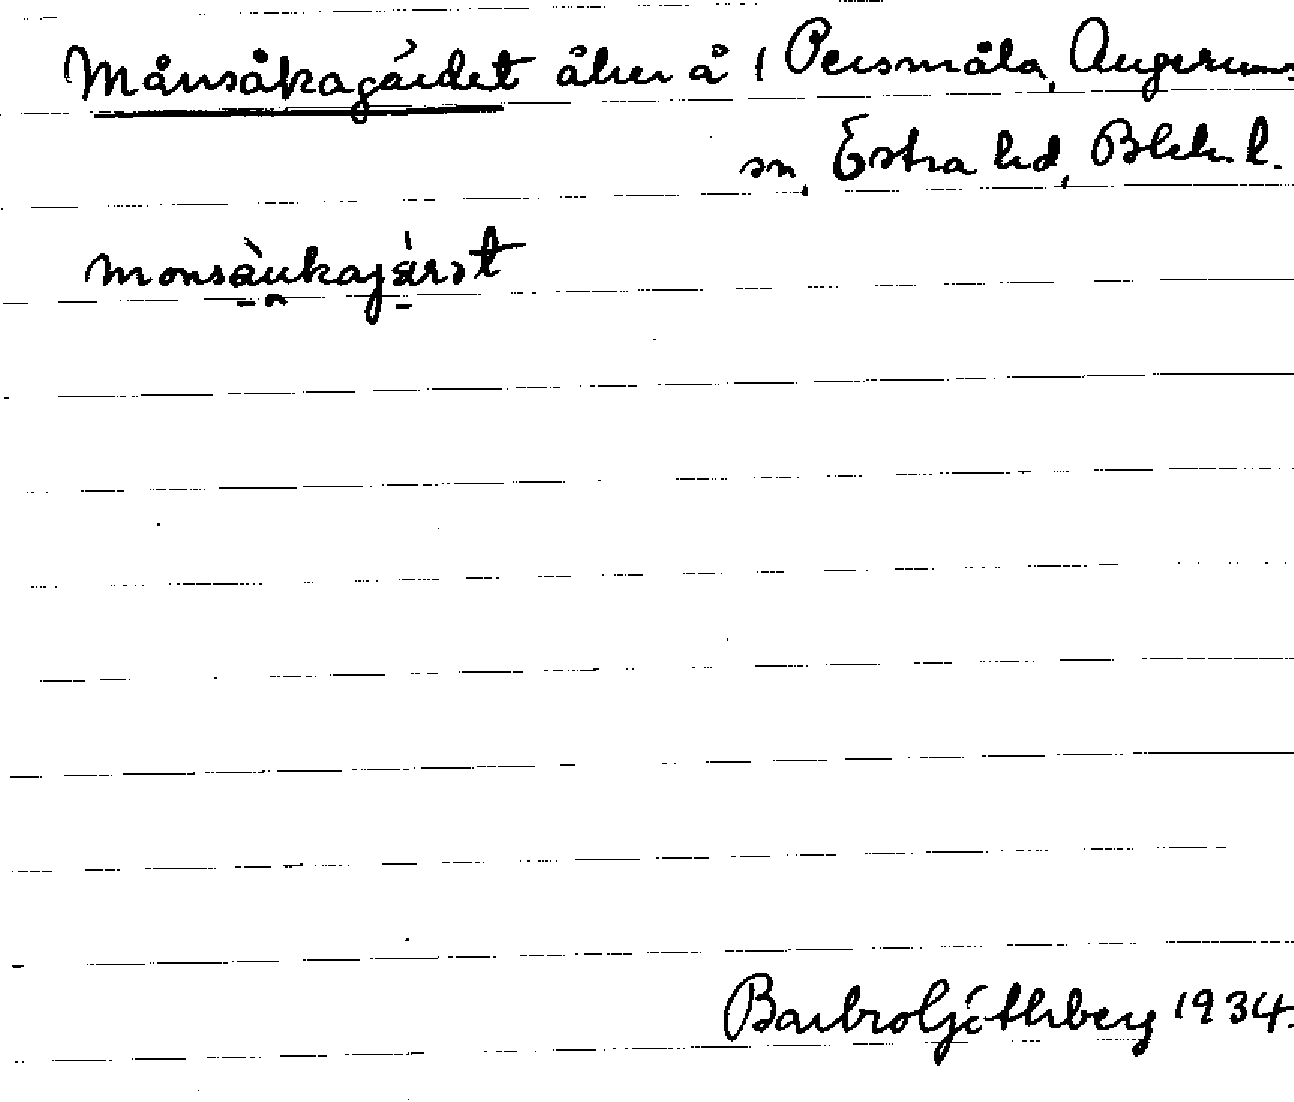 Månsåkagärdet åker å 1 Persmåla, Augerums
sn, Östra hd, Blek. l.
monsàukajárət
Barbro Götherberg 1934.